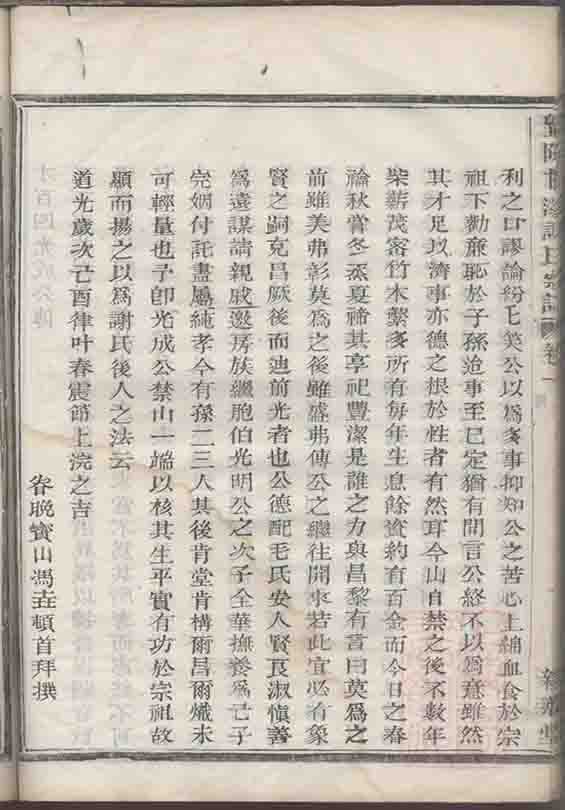 利之口謬論紛乇笑公以為多事抑知公之苦心上綿血食於宗
祖下勸廉恥於子孫迨事至已定猶有間言公終不以為意雖然
其才足以濟事亦德之根於性者有然耳今山自禁之後不數年
柴薪茂密竹木繫多所有每年生息餘資約有百金而今日之春
禴秋嘗冬烝夏禘其享祀豐潔是誰之力與昌黎有言曰莫為之
前雖美弗彰莫為之後雖盛弗傳公之繼往開來若此宜必有象
賢之嗣克昌厥後而迪前光者也公德配毛氏安人賢良淑慎善
為遠謀請親戚邀房族繼胞伯光明公之次子全華撫養為己子
完姻付託盡屬純孝今有孫二三人其後肯堂肯構爾昌爾熾未
可輕量也予卽光成公禁山一端以核其生平實有功於宗祖故
顯而揚之以為謝氏後人之法云
道光歲次己酉律叶春震節上浣之吉
眷晚寳山馮
頓首拜撰
氏宗譜
卷一